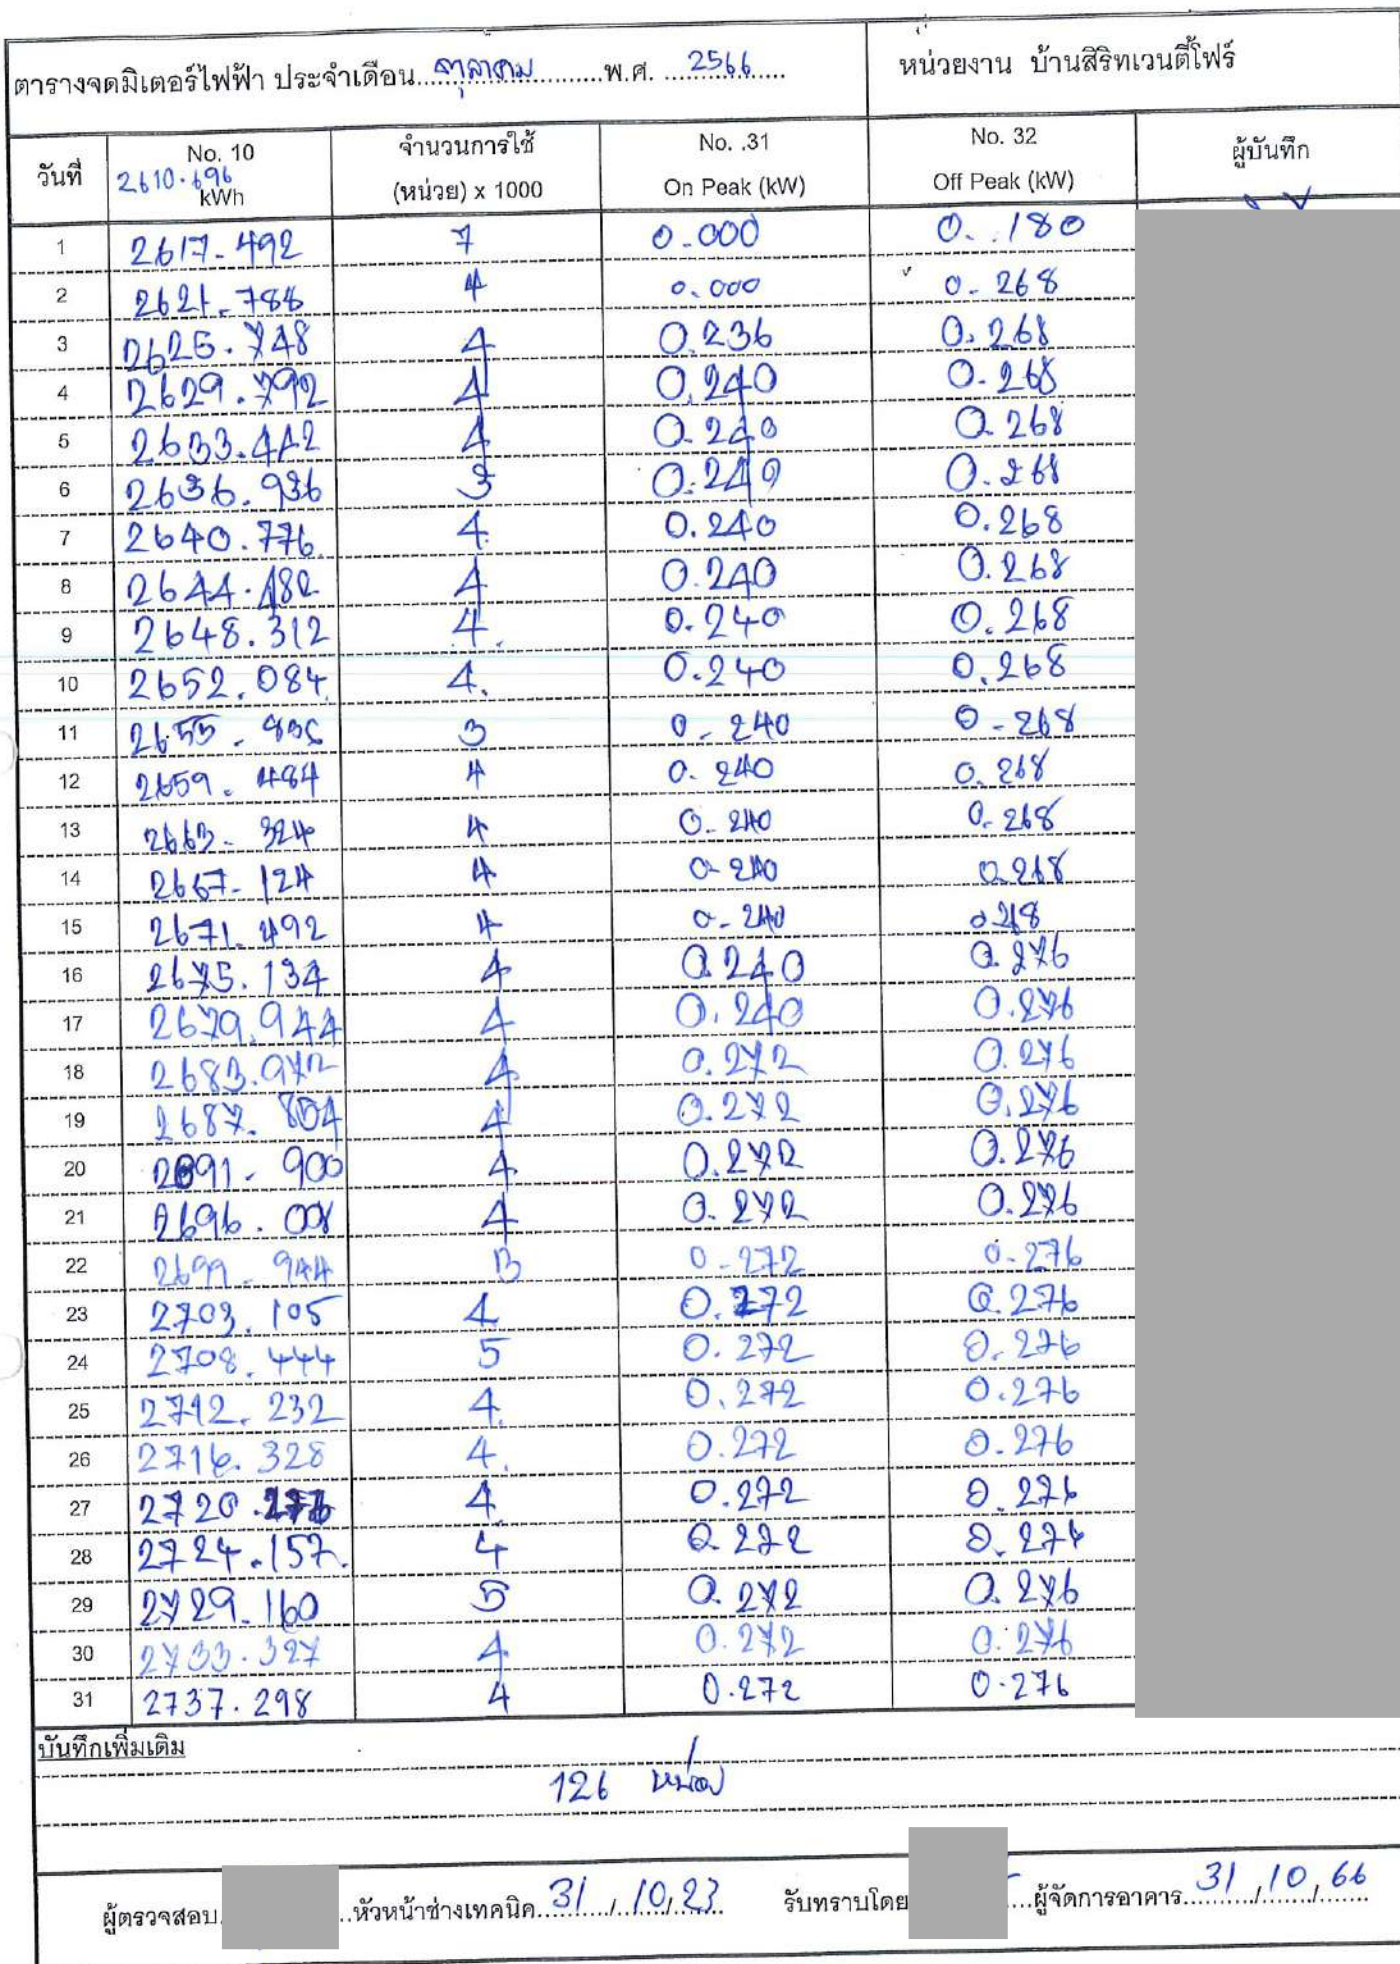 ตารางจดมิเตอร์ไฟฟ้า ประจำเดือน....ตุลาคม.........พ.ศ. ...2566......
หน่วยงาน บ้านสิริทเวนตี้โฟร์
วันที่ No. 10 2610.696 kWh จำนวนการใช้ (หน่วย) x 1000 No. .31 On Peak (kW) No. 32 Off Peak (kW) ผู้บันทึก
1 2617-492 7 0-000 0..180
2 2621-788 4 0.000 0-268
3 2625.748 4 0.236 0.268
4 2629.792 4 0.240 0-268
5 2633.442 4 0-240 0.268
6 2636.936 3 0.240 0.268
7 2640.776 4 0.240 0.268
8 2644.482 4 0.240 0.268
9 2648.312 4. 0.240 0.268
10 2652.084 4. 0.240 0.268
11 2655- 3 0-240 0-268
12 2659.484 4 0.240 0.268
13 2663-324 4 0-240 0-268
14 2667-124 4 0-240 0.268
15 2671.492 4 0-240 0.268
16 2675.134 4 0.240 0.276
17 2679.944 4 0.240 0.276
18 2683.972 4 0.272 0.276
19 2687.854 4 0.272 0.276
20 2691-900 4 0.272 0.276
21 2696.008 4 0.272 0.276
22 2699-944 3 0-272 0-276
23 2703.105 4 0.272 0.276
24 2708.444 5 0.272 0.276
25 2712.232 4. 0.272 0.276
26 2716.328 4. 0.272 0.276
27 2720.276 4 0.272 0.276
28 2724.157. 4 0.272 0.276
29 2729.160 5 0.272 0.276
30 2733.327 4 0.272 0.276
31 2737.298 4 0.272 0.276
บันทึกเพิ่มเติม
126 หน่วย
ผู้ตรวจสอบ. ..หัวหน้าช่างเทคนิค...31../..10./.23.. รับทราบโดย ....ผู้จัดการอาคาร...31..../..10../..66..